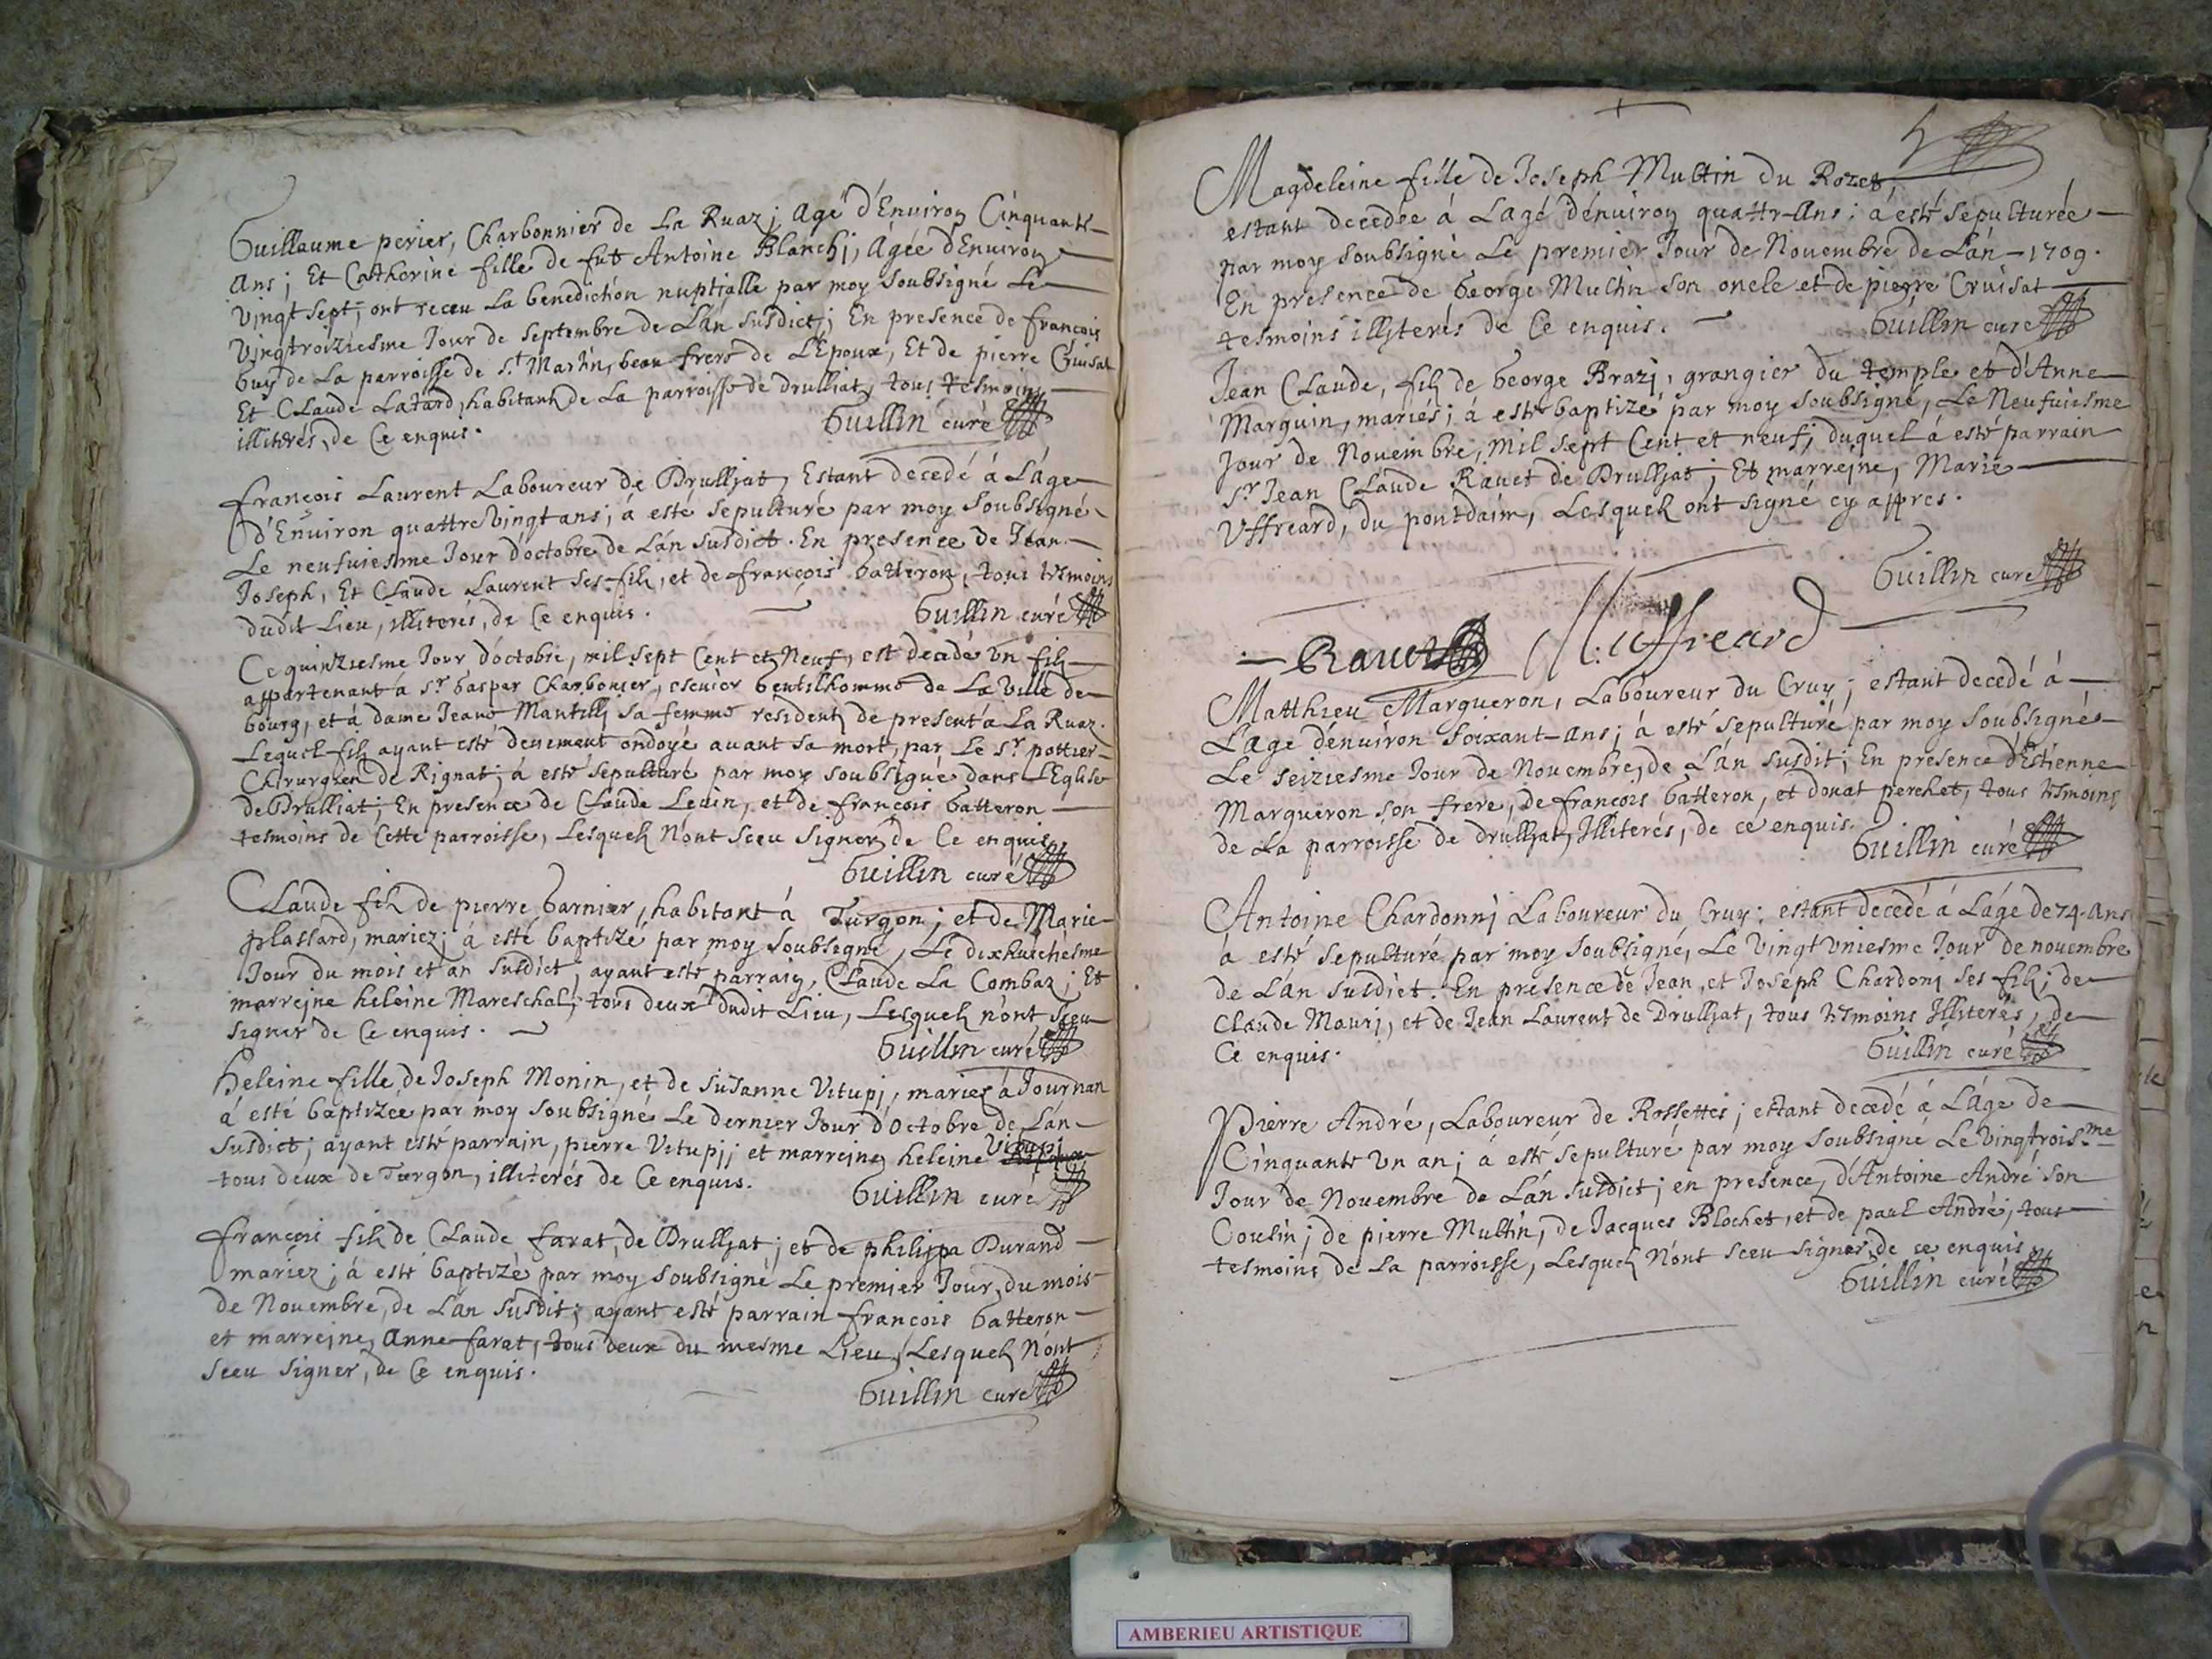 Guillaume perier, Charbonnier de La Ruaz; Agé d'Enuiron Cinquante
Ans; Et Catherine fille de fut Antoine Blanchj, Agée d'Enuiron
Vingt sept; ont receu La benediction nuptialle par moy soubsigné Le
Vingtroiziesme Jour de septembre de L'án susdict; En presence de françois
Guy de La parroisse de St Martin, beau frere de L'Epoux, Et de pierre Cruisat
Et CLaude Latard, habitants de La parroisse de drulliat, tous tesmoins
illiterés, de Ce enquis.
Guillin curé
françois Laurent Laboureur de Drulljat, Estant decedé á L'áge
D'Enuiron quattre Vingt ans; á esté sepulturé par moy soubsigné
Le neufuiesme Jour d'octobre de L'án susdict. En presence de Jean
Joseph, Et CLaude Laurent ses fils, et de françois Gatteron, tous tesmoins
dudit Lieu, illiterés, de Ce enquis.
Guillin curé
Ce quinziesme Jour d'octobre, mil sept Cent et Neuf, est decedé Vn fils
appartenant á sr Gaspar Charbonier, escuier Gentilhomme de La Ville de
bourg, et á dame Jeane Mantillj sa femme residents de present á La Ruaz.
Lequel fils ayant esté deuement ondoyé auant sa mort, par Le sr pottier
Chirurgien de Rignat; á esté sepulturé par moy soubsigné dans L'Eglise
de Drulliat; En presence de CLaude Leuin, et de françois Gatteron
tesmoins de Cette parroisse, Lesquels N'ont sceu signer, de Ce enquis.
Guillin curé
CLaude fils de pierre Garnier, habitant á Turgon; et de Marie
plassard, mariez; á esté baptizé par moy soubsigné, Le dixhuictiesme
Jour du mois et an susdict, ayant esté parrain, CLaude La Combaz; Et
marreine heleine Mareschal, tous deux dudit Lieu, Lesquels n'ont sceu
signer de Ce enquis.
Guillin curé
Heleine fille de Joseph Monin, et de Susanne Vitupj, mariez á Journan
á esté baptizée par moy soubsigné Le dernier Jour d'Octobre de L'án
susdict; ayant esté parrain, pierre Vitupj; et marreine heleine Vitupj
tous deux de Turgon, illiterés de Ce enquis.
Guillin curé
françois fils de CLaude farat, de Drulljat; et de philippa Durand
mariez; á esté baptizé par moy soubsigné Le premier Jour du mois
de Nouembre, de L'án susdit; ayant esté parrain françois Gatteron
et marreine, Anne farat, tous deux du mesme Lieu, Lesquels N'ont
sceu signer, de Ce enquis.
Guillin curé
Magdeleine fille de Joseph Multin du Rozet,
estant decedée á L'agé d'enuiron quattr-Ans; á esté sepulturée
par moy soubsigné Le premier Jour de Nouembre de L'án - 1709.
En presence de George Multin son oncle et de pierre Cruisat
tesmoins illyterés de Ce enquis.
Guillin curé
Jean CLaude, fils de George Brazj, grangier du temple et d'Anne
Marguin, mariés; á esté baptizé par moy soubsigné, Le Neufuiesme
Jour de Nouembre, mil sept Cent et neuf; duquel á esté parrain
Sr Jean CLaude Rauet de Drulljat; Et marreine, Marie
Vffreard, du pontdaim, Lesquels ont signé cy appres.
Guillin curé
Rauet Uffreard
Matthieu Margueron, Laboureur du Cruy; estant decedé á
L'age d'enuiron soixant-ans; á esté sepulturé par moy soubsigné
Le seiziesme Jour de Nouembre, de L'án susdit; En presence d'Estienne
Margueron son frere, de francois Gatteron, et donat perchet, tous tesmoins
de La parroisse de drulljat, Illiterés, de ce enquis.
Guillin curé
Antoine Chardonnj Laboureur du Cruy; estant decedé á L'ágé de 74. Ans
á esté sepulturé par moy soubsigné, Le Vingt Vniesme Jour de nouembre
de L'án susdict. En presence de Jean, et Joseph Chardonj ses fils; de
Claude Maurj, et de Jean Laurent de Drulljat, tous tesmoins Illiterés, de
Ce enquis.
Guillin curé
Pierre André, Laboureur de Rossettes; estant decedé á L'áge de
Cinquante Vn an; á esté sepulturé par moy soubsigné Le Vingtroisme
Jour de Nouembre de L'án susdict; en presence, d'Antoine André son
Cousin; de pierre Multin, de Jacques Blochet, et de paul André, tous
tesmoins de La parroisse, Lesquels N'ont sceu signer, de ce enquis.
Guillin curé
AMBERIEU ARTISTIQUE